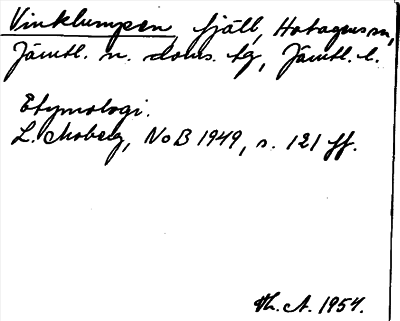 Vinklumpen, fjäll, Hotagens sn,
Jämtl. n. doms. tg, Jämtl. l.
Etymologi.
L. Moberg, NoB 1949, s. 121 ff.
Th. A. 1954.